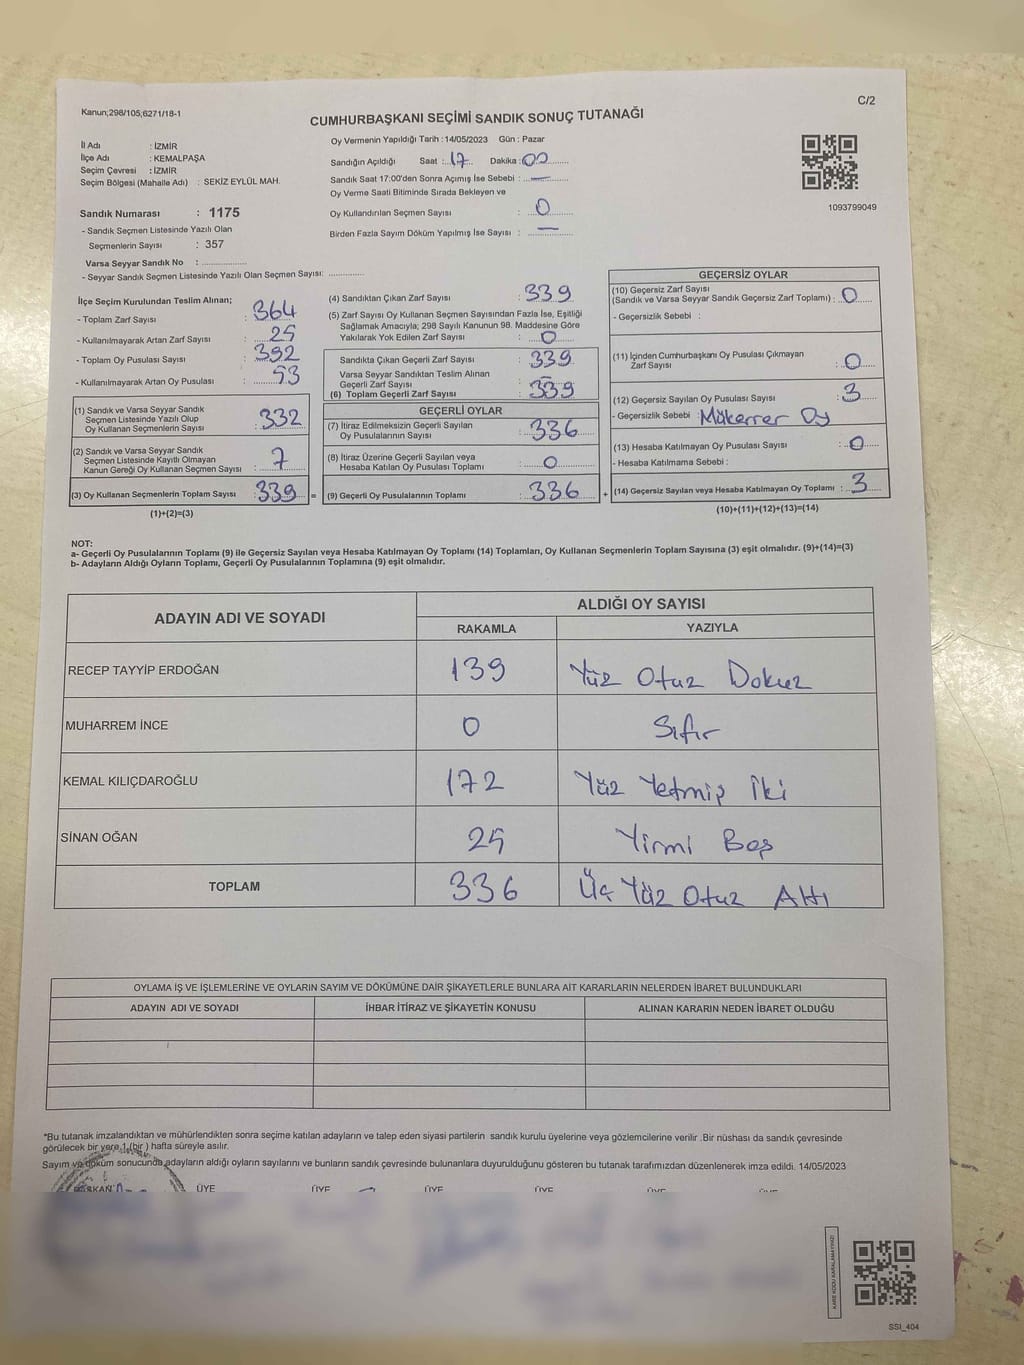 Kanun;298/105;6271/18-1
C/2
CUMHURBAŞKANI SEÇİMİ SANDIK SONUÇ TUTANAĞI
İl Adı : İZMİR
İlçe Adı : KEMALPAŞA
Seçim Çevresi : İZMİR
Seçim Bölgesi (Mahalle Adı) : SEKİZ EYLÜL MAH.
Sandık Numarası : 1175
- Sandık Seçmen Listesinde Yazılı Olan
Seçmenlerin Sayısı : 357
Varsa Seyyar Sandık No : ..................
- Seyyar Sandık Seçmen Listesinde Yazılı Olan Seçmen Sayısı: ..............
Oy Vermenin Yapıldığı Tarih : 14/05/2023 Gün : Pazar
Sandığın Açıldığı Saat : 17 Dakika : 00
Sandık Saat 17:00'den Sonra Açımış İse Sebebi : —
Oy Verme Saati Bitiminde Sırada Bekleyen ve
Oy Kullandırılan Seçmen Sayısı : 0
Birden Fazla Sayım Döküm Yapılmış İse Sayısı : —
1093799049
İlçe Seçim Kurulundan Teslim Alınan;
- Toplam Zarf Sayısı : 364
- Kullanılmayarak Artan Zarf Sayısı : 25
- Toplam Oy Pusulası Sayısı : 392
- Kullanılmayarak Artan Oy Pusulası : 53
(1) Sandık ve Varsa Seyyar Sandık
Seçmen Listesinde Yazılı Olup
Oy Kullanan Seçmenlerin Sayısı : 332
(2) Sandık ve Varsa Seyyar Sandık
Seçmen Listesinde Kayıtlı Olmayan
Kanun Gereği Oy Kullanan Seçmen Sayısı : 7
(3) Oy Kullanan Seçmenlerin Toplam Sayısı : 339 =
(1)+(2)=(3)
(4) Sandıktan Çıkan Zarf Sayısı : 339
(5) Zarf Sayısı Oy Kullanan Seçmen Sayısından Fazla İse, Eşitliği
Sağlamak Amacıyla; 298 Sayılı Kanunun 98. Maddesine Göre
Yakılarak Yok Edilen Zarf Sayısı : 0
Sandıkta Çıkan Geçerli Zarf Sayısı : 339
Varsa Seyyar Sandıktan Teslim Alınan
Geçerli Zarf Sayısı : —
(6) Toplam Geçerli Zarf Sayısı : 339
GEÇERLİ OYLAR
(7) İtiraz Edilmeksizin Geçerli Sayılan
Oy Pusulalarının Sayısı : 336
(8) İtiraz Üzerine Geçerli Sayılan veya
Hesaba Katılan Oy Pusulası Toplamı : 0
(9) Geçerli Oy Pusulalarının Toplamı : 336 +
GEÇERSİZ OYLAR
(10) Geçersiz Zarf Sayısı
(Sandık ve Varsa Seyyar Sandık Geçersiz Zarf Toplamı) : 0
- Geçersizlik Sebebi :
(11) İçinden Cumhurbaşkanı Oy Pusulası Çıkmayan
Zarf Sayısı : 0
(12) Geçersiz Sayılan Oy Pusulası Sayısı : 3
- Geçersizlik Sebebi : Mükerrer Oy
(13) Hesaba Katılmayan Oy Pusulası Sayısı : 0
- Hesaba Katılmama Sebebi :
(14) Geçersiz Sayılan veya Hesaba Katılmayan Oy Toplamı : 3
(10)+(11)+(12)+(13)=(14)
NOT:
a- Geçerli Oy Pusulalarının Toplamı (9) ile Geçersiz Sayılan veya Hesaba Katılmayan Oy Toplamı (14) Toplamları, Oy Kullanan Seçmenlerin Toplam Sayısına (3) eşit olmalıdır. (9)+(14)=(3)
b- Adayların Aldığı Oyların Toplamı, Geçerli Oy Pusulalarının Toplamına (9) eşit olmalıdır.
ADAYIN ADI VE SOYADI
ALDIĞI OY SAYISI
RAKAMLA YAZIYLA
RECEP TAYYİP ERDOĞAN 139 Yüz Otuz Dokuz
MUHARREM İNCE 0 Sıfır
KEMAL KILIÇDAROĞLU 172 Yüz Yetmiş İki
SİNAN OĞAN 25 Yirmi Beş
TOPLAM 336 Üç Yüz Otuz Altı
OYLAMA İŞ VE İŞLEMLERİNE VE OYLARIN SAYIM VE DÖKÜMÜNE DAİR ŞİKAYETLERLE BUNLARA AİT KARARLARIN NELERDEN İBARET BULUNDUKLARI
ADAYIN ADI VE SOYADI İHBAR İTİRAZ VE ŞİKAYETİN KONUSU ALINAN KARARIN NEDEN İBARET OLDUĞU
*Bu tutanak imzalandıktan ve mühürlendikten sonra seçime katılan adayların ve talep eden siyasi partilerin sandık kurulu üyelerine veya gözlemcilerine verilir .Bir nüshası da sandık çevresinde
görülecek bir yere 1 (bir ) hafta süreyle asılır.
Sayım ve döküm sonucunda adayların aldığı oyların sayılarını ve bunların sandık çevresinde bulunanlara duyurulduğunu gösteren bu tutanak tarafımızdan düzenlenerek imza edildi. 14/05/2023
BAŞKAN ÜYE ÜYE ÜYE ÜYE ÜYE ÜYE
KARE KODU KARALAMAYINIZ!
SSI_404